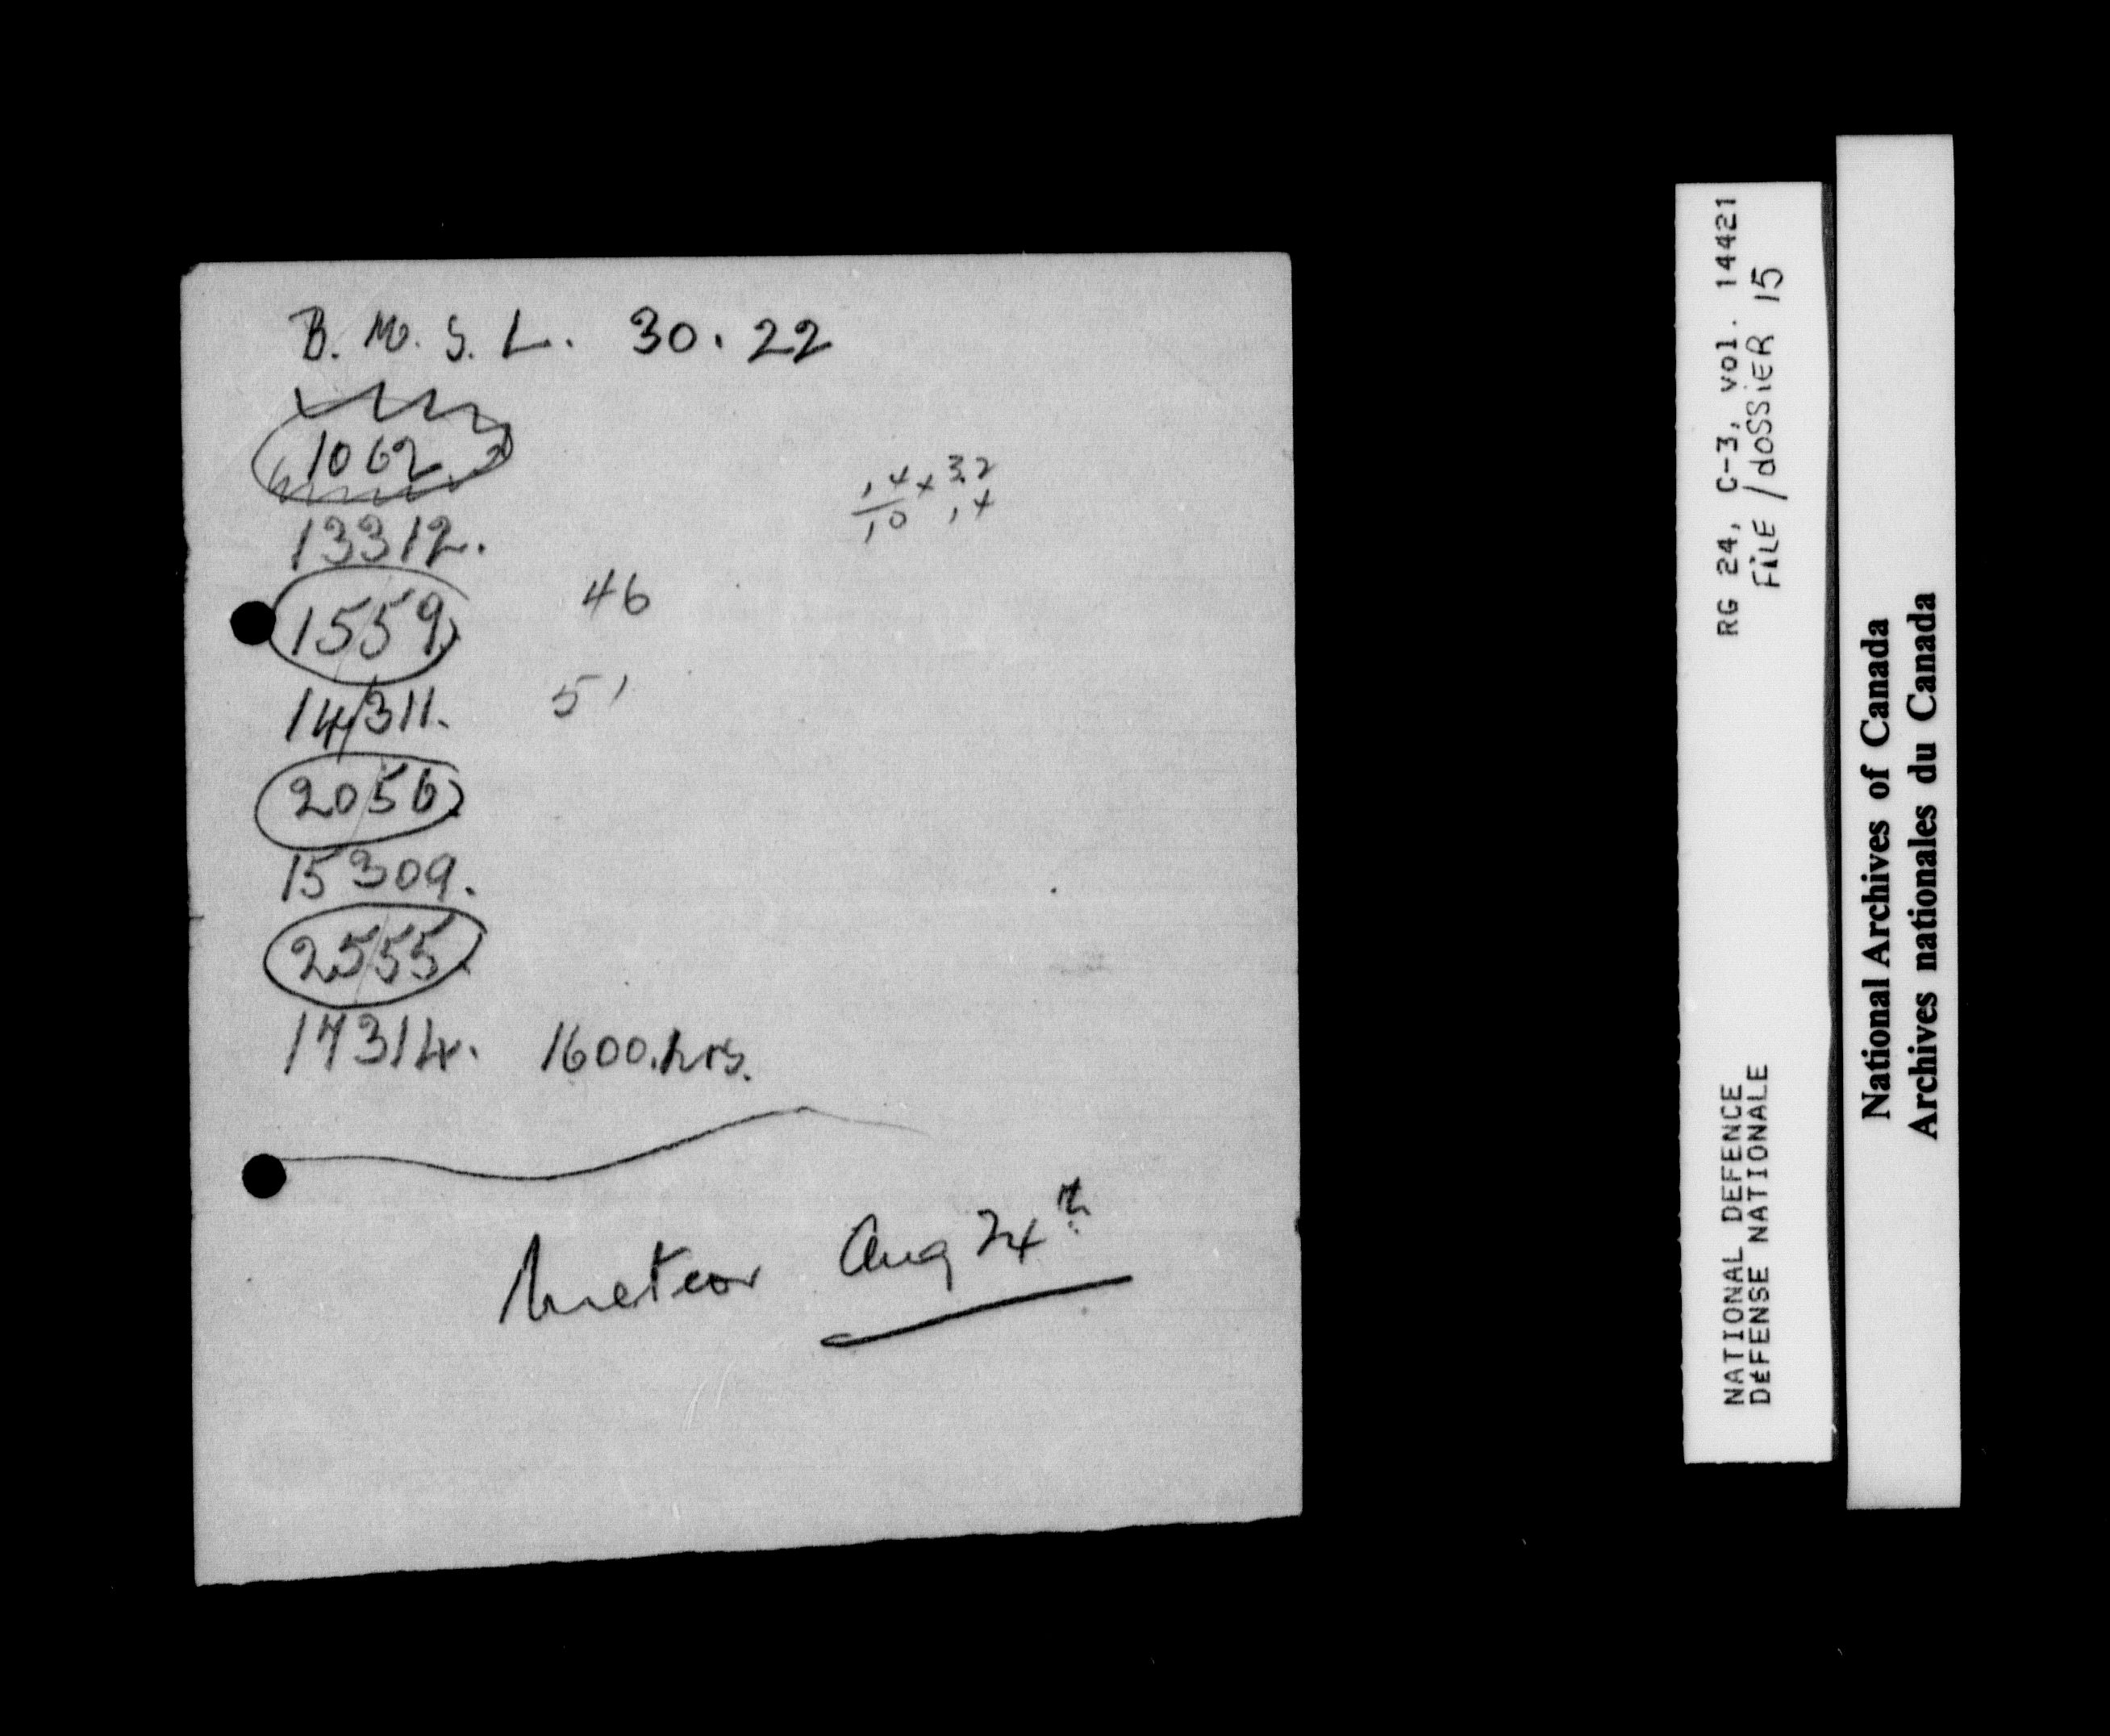 B. M. S. L. 30.22
1062
13312.
1559
46
14311.
51
2056
15309.
2555
17314. 1600.hrs.
Meteor Aug 24th
RG 24, C-3, vol. 14421
FiLE / dOSSiER 15
NATIONAL DEFENCE
DÉFENSE NATIONALE
National Archives of Canada
Archives nationales du Canada